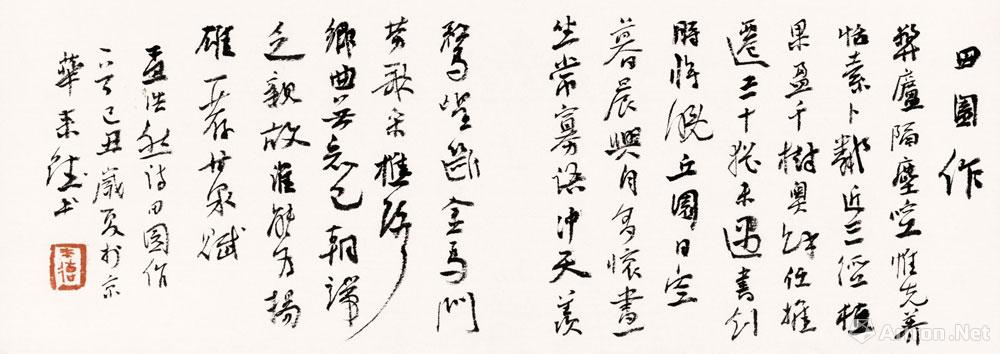 田園作
弊廬隔塵喧惟先養
恬素卜鄰近三徑植
果盈千樹奧余任推
遷三十猶未遇書劍
時將晚丘園日空
暮晨興自多懷晝
坐常寡悟沖天羨
鶩望斷金馬門
勞歌采樵路
鄉曲無知己朝端
乏親故誰能為揚
雄一薦甘泉賦
孟浩然詩田園作
己丑歲夏於京
華
Artron.Net